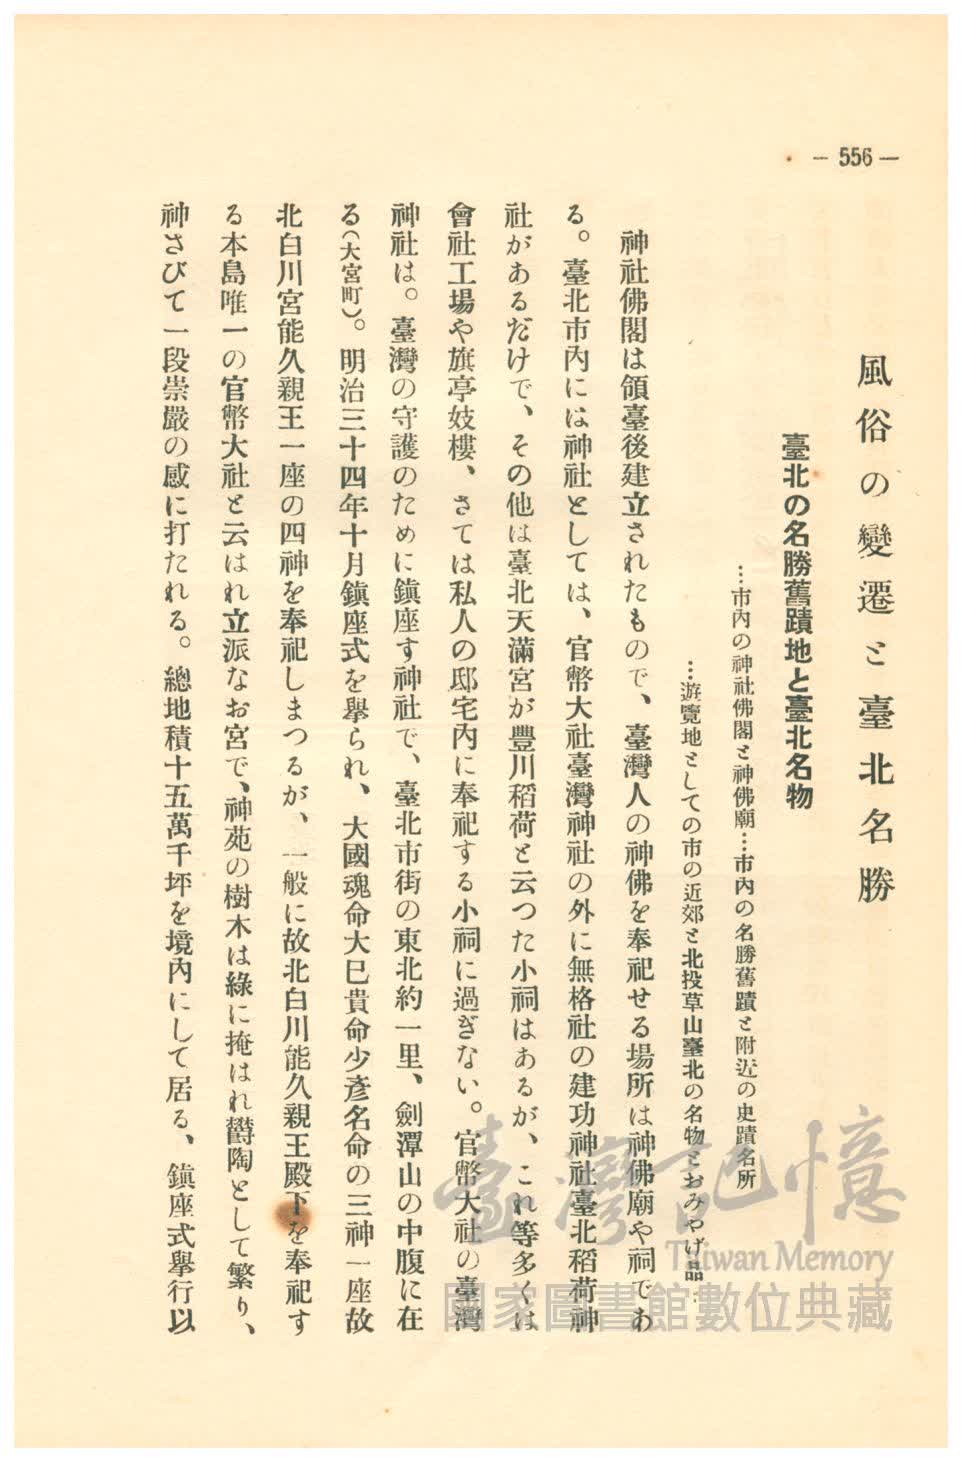 — 556 —
風俗の變遷と臺北名勝
臺北の名勝舊蹟地と臺北名物
…市內の神社佛閣と神佛廟…市內の名勝舊蹟と附近の史蹟名所
…遊覽地としての市の近郊と北投草山臺北の名物とおみやげ品…
神社佛閣は領臺後建立されたもので、臺灣人の神佛を奉祀せる場所は神佛廟や祠であ
る。臺北市內には神社としては、官幣大社臺灣神社の外に無格社の建功神社臺北稻荷神
社があるだけで、その他は臺北天滿宮が豐川稻荷と云つた小祠はあるが、これ等多くは
會社工場や旗亭妓樓、さては私人の邸宅內に奉祀する小祠に過ぎない。官幣大社の臺灣
神社は。臺灣の守護のために鎭座す神社で、臺北市街の東北約一里、劍潭山の中腹に在
る(大宮町)。明治三十四年十月鎭座式を擧られ、大國魂命大巳貴命少彥名命の三神一座故
北白川宮能久親王一座の四神を奉祀しまつるが、一般に故北白川能久親王殿下を奉祀す
る本島唯一の官幣大社と云はれ立派なお宮で、神苑の樹木は綠に掩はれ鬱陶として繁り、
神さびて一段崇嚴の感に打たれる。總地積十五萬千坪を境內にして居る、鎭座式擧行以
臺灣記憶
Taiwan Memory
國家圖書館數位典藏